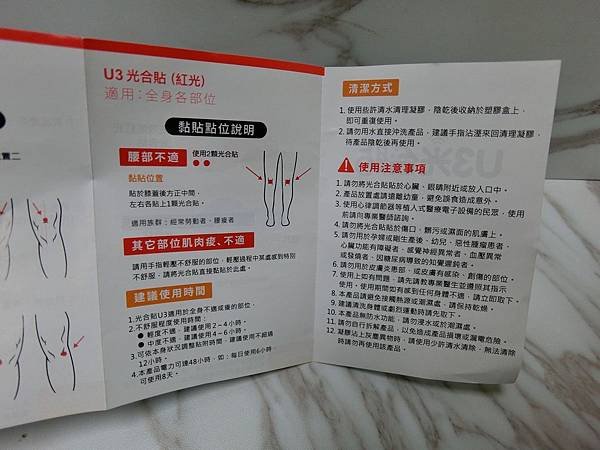 置二
U3 光合貼 (紅光)
適用：全身各部位
黏貼點位說明
腰部不適 使用2顆光合貼
黏貼位置
貼於膝蓋後方正中間，
左右各貼上1顆光合貼。
適用族群：經常勞動者、腰痠者
其它部位肌肉痠、不適
請用手指輕壓不舒服的部位，輕壓過程中某處感到特別
不舒服，請將光合貼直接黏貼於此處。
建議使用時間
1.光合貼U3適用於全身不適或痠的部位。
2.不舒服程度使用時間：
● 輕度不適，建議使用 2~4小時。
● 中度不適，建議使用 4~6小時。
3.可依本身狀況調整貼附時間，建議使用不超過
12小時。
4.本產品電力可達48小時，如：每日使用6小時，
可使用8天。
清潔方式
1. 使用些許清水清理凝膠，陰乾後收納於塑膠盒上，
即可重復使用。
2. 請勿用水直接沖洗產品，建議手指沾溼來回清理凝膠，
待產品陰乾後再使用。
使用注意事項
1. 請勿將光合貼貼於心臟、眼睛附近或放入口中。
2. 產品放置處請遠離幼童，避免誤食造成意外。
3. 使用心律調節器等植入式醫療電子設備的民眾，使用
前請向專業醫師諮詢。
4. 請勿將光合貼黏貼於傷口、髒污或濕面的肌膚上。
5. 請勿用於孕婦或剛生產後、幼兒、惡性腫瘤患者、
心臟功能有障礙者、感覺神經異常者、血壓異常
或發燒者、因糖尿病導致的知覺遲鈍者。
6. 請勿用於皮膚炎患部、或皮膚有感染、創傷的部位。
7. 使用上如有問題，請先請教專業醫生並遵照其指示
使用，使用期間如有感到任何身體不適，請立即取下。
8. 本產品請避免接觸熱源或潮濕處，請保持乾燥。
9. 建議清洗身體或劇烈運動時請先取下。
10. 本產品無防水功能，請勿浸水或於潮濕處。
11. 請勿自行拆解產品，以免造成產品損壞或漏電危險。
12. 凝膠沾上灰塵異物時，請使用少許清水清除，無法清除
時請勿再使用該產品。